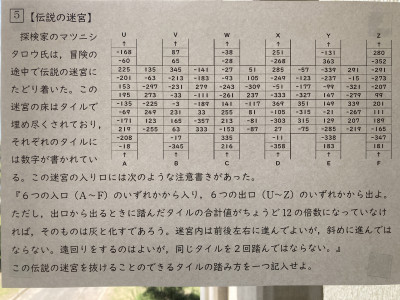 5 【伝説の迷宮】
探検家のマツニシ
タロウ氏は，冒険の
途中で伝説の迷宮に
たどり着いた。この
迷宮の床はタイルで
埋め尽くされており，
それぞれのタイルに
は数字が書かれてい
U V W X Y Z
↑ ↑ ↑ ↑ ↑ ↑
-168 87 -38 251 -131 280
-60 65 -28 -268 363 -352
225 135 345 -141 -27 51 285 -57 -339 291 -291
-201 -63 -213 -183 -93 105 -249 -123 -237 -15 -273
153 -297 -231 279 -243 -309 -51 -177 -99 -321 -207
195 273 33 -111 -261 237 -333 -327 147 -279 99
-135 -225 -3 -189 141 -117 369 351 149 339 201
-69 249 231 33 255 81 -105 -315 -21 -267 111
-171 123 165 -357 213 -81 -303 315 129 207 189
219 -255 63 333 -153 -87 27 -75 -285 -219 -165
-208 -17 335 -11 -338 -347
-18 -345 216 -358 183 181
↑ ↑ ↑ ↑ ↑ ↑
A B C D E F
る。この迷宮の入り口には次のような注意書きがあった。
『６つの入口（A〜F）のいずれかから入り，６つの出口（U〜Z）のいずれかから出よ。
ただし，出口から出るときに踏んだタイルの合計値がちょうど12の倍数になっていなけ
れば，そのものは灰と化すであろう。迷宮内は前後左右に進んでよいが，斜めに進んでは
ならない。遠回りをするのはよいが，同じタイルを２回踏んではならない。』
この伝説の迷宮を抜けることのできるタイルの踏み方を一つ記入せよ。